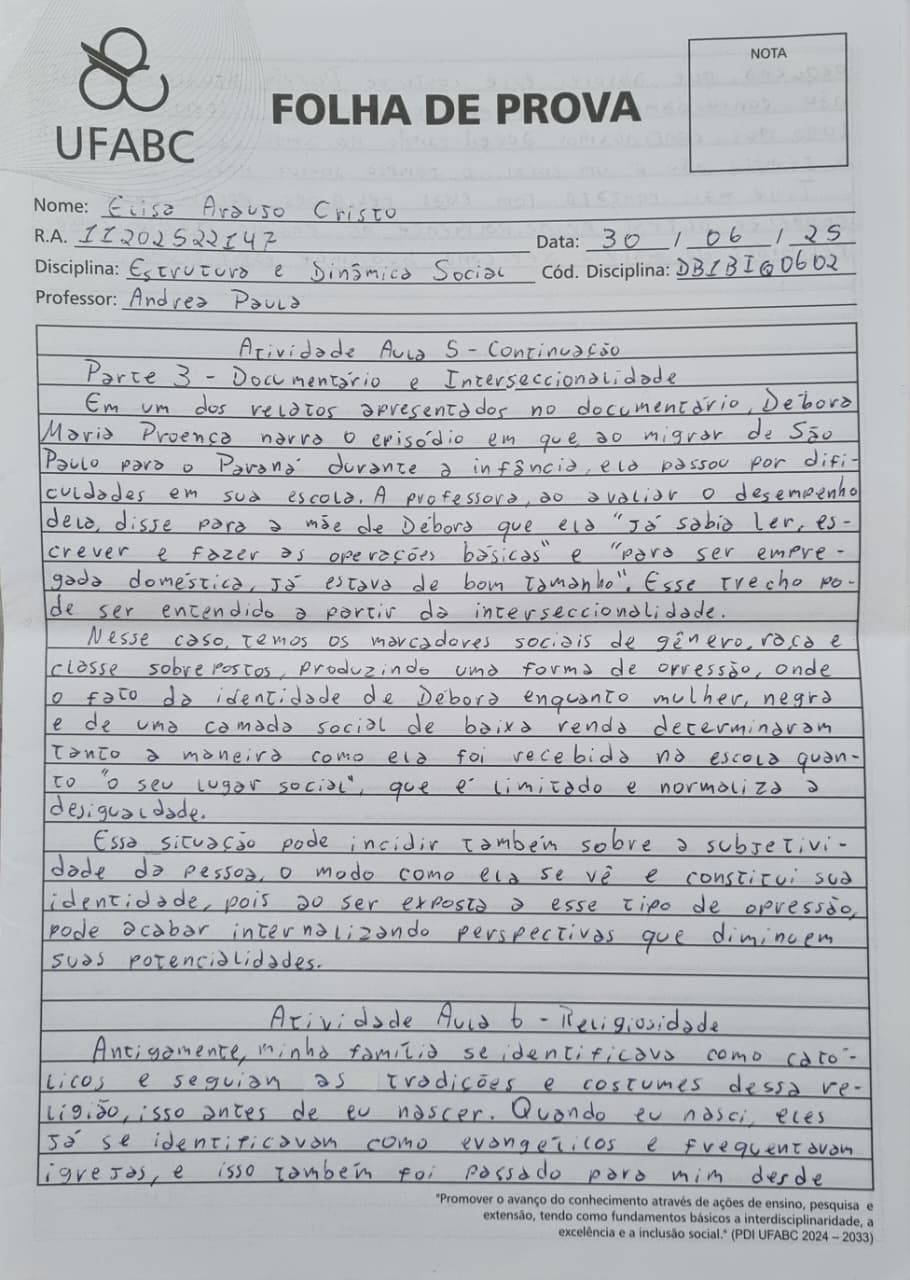 UFABC
FOLHA DE PROVA
NOTA
Nome: Elisa Araujo Cristo
R.A. 11202522147 Data: 30 / 06 / 25
Disciplina: Estrutura e Dinâmica Social Cód. Disciplina: DBIBIQ0602
Professor: Andrea Paula
Atividade Aula 5 - Continuação
Parte 3 - Documentário e Interseccionalidade
Em um dos relatos apresentados no documentário, Débora
Maria Proença narra o episódio em que, ao migrar de São
Paulo para o Paraná durante a infância, ela passou por difi-
culdades em sua escola. A professora, ao avaliar o desempenho
dela, disse para a mãe de Débora que ela "já sabia ler, es-
crever e fazer as operações básicas" e "para ser empre-
gada doméstica, já estava de bom tamanho". Esse trecho po-
de ser entendido a partir da interseccionalidade.
Nesse caso, temos os marcadores sociais de gênero, raça e
classe sobrepostos, produzindo uma forma de opressão, onde
o fato da identidade de Débora enquanto mulher, negra
e de uma camada social de baixa renda determinaram
tanto a maneira como ela foi recebida na escola quan-
to "o seu lugar social", que é limitado e normaliza a
desigualdade.
Essa situação pode incidir também sobre a subjetivi-
dade da pessoa, o modo como ela se vê e constitui sua
identidade, pois ao ser exposta a esse tipo de opressão,
pode acabar internalizando perspectivas que diminuem
suas potencialidades.
Atividade Aula 6 - Religiosidade
Antigamente, minha família se identificava como cató-
licos e seguian as tradições e costumes dessa re-
ligião, isso antes de eu nascer. Quando eu nasci, eles
já se identificavam como evangélicos e frequentavam
igrejas, e isso também foi passado para mim desde
"Promover o avanço do conhecimento através de ações de ensino, pesquisa e
extensão, tendo como fundamentos básicos a interdisciplinaridade, a
excelência e a inclusão social." (PDI UFABC 2024 – 2033)